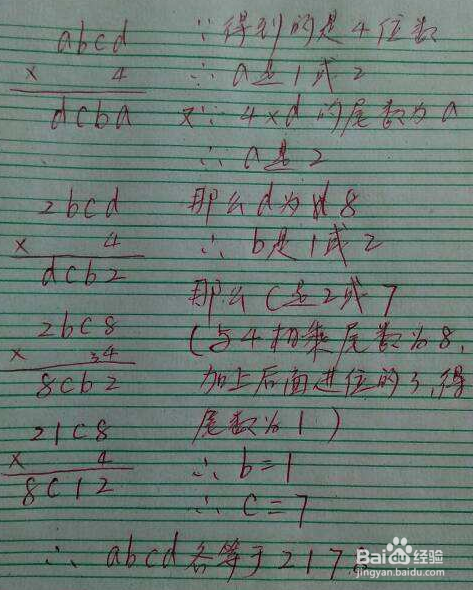 abcd ∵得到的是4位数
× 4 ∴a是1或2
dcba 又∵4×d的尾数为a
∴a是2
2bcd 那么d为8
× 4 ∴b是1或2
dcb2 那么C是2或7
2bc8 (与4相乘尾数为8,
× 34
8cb2 加上后面进位的3,得
21c8 尾数为1)
× 4 ∴b=1
8c12 ∴c=7
∴abcd各等于217
Baidu经验
jingyan.baidu.com